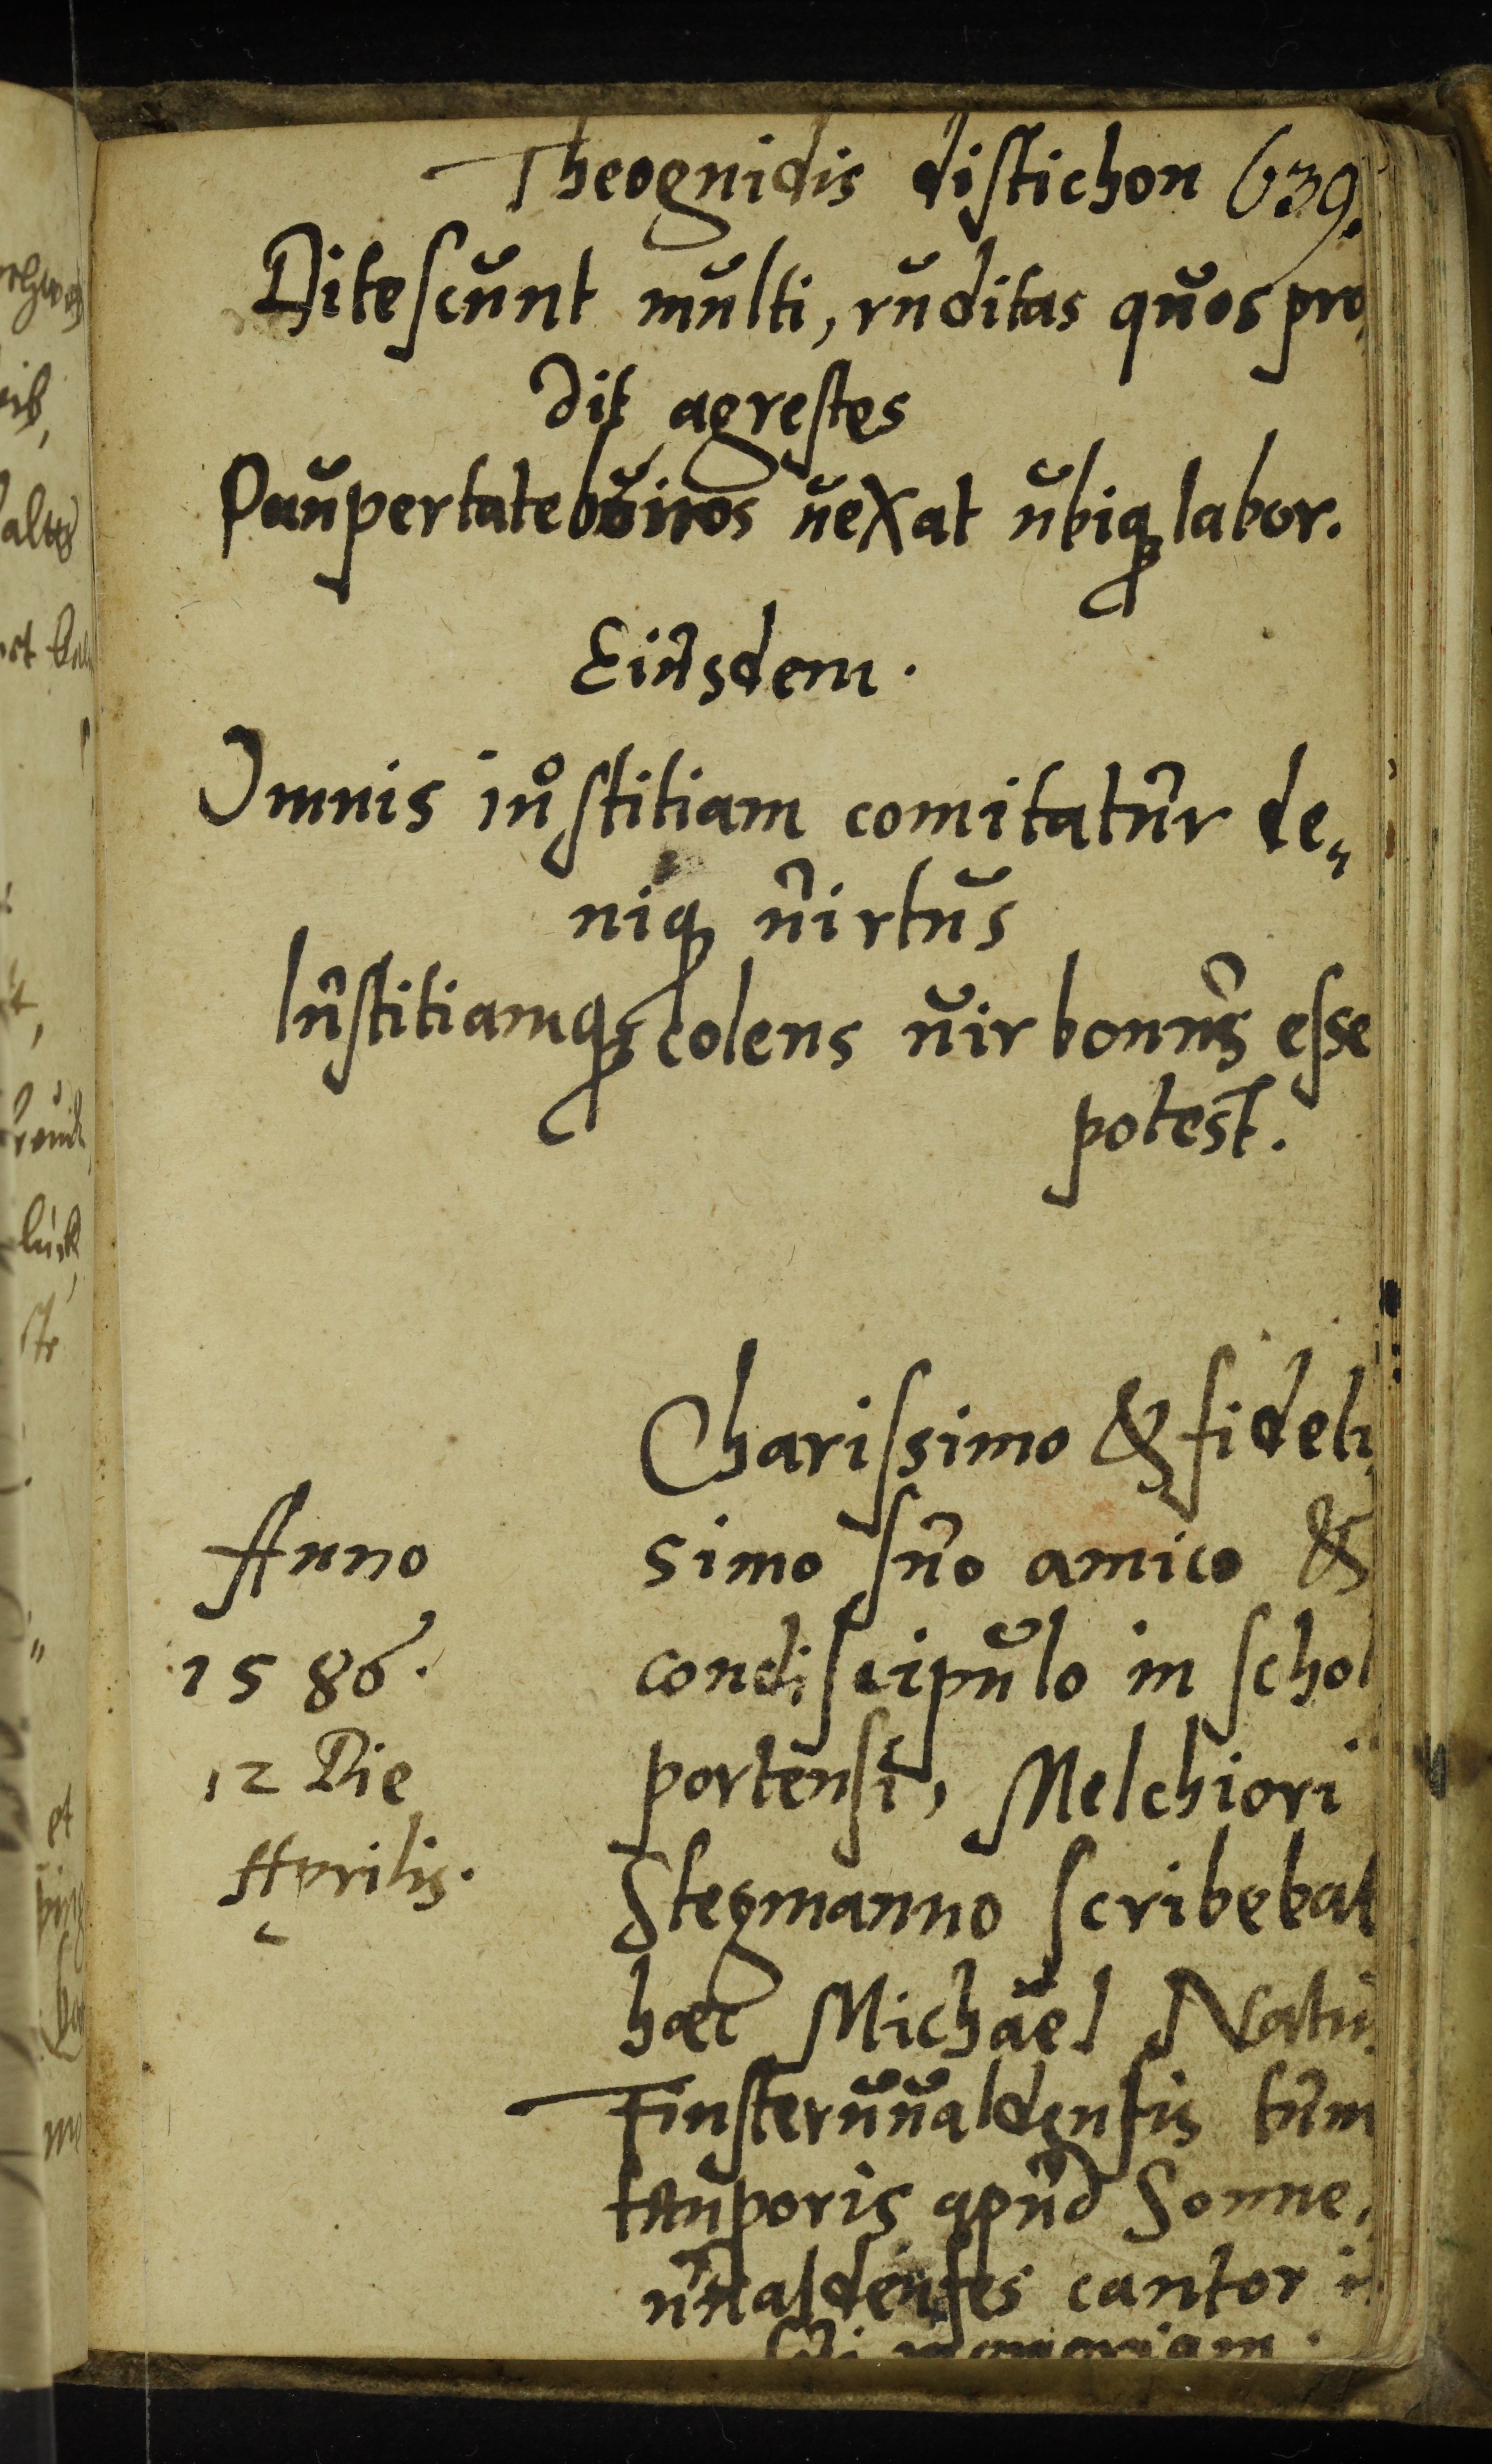 Theognidis distichon 639.
Ditescunt multi, ruditas quos pro„
dit agrestes
Paupertate bonos uexat ubiq labor.
Eiusdem.
Omnis iustitiam comitatur de„
niq uirtus
Iustitiamq colens uir bonus esse
potest.
Charissimo & fideli
simo suo amico &
condiscipulo in schol
portensi, Melchiori
Stegmanno scribebat
hæc Michaël Natus
Finsteruualdensis tum
temporis apud Sonne„
uualdenses cantor in
sui memoriam.
Anno
1586.
12 Die
Aprilis.